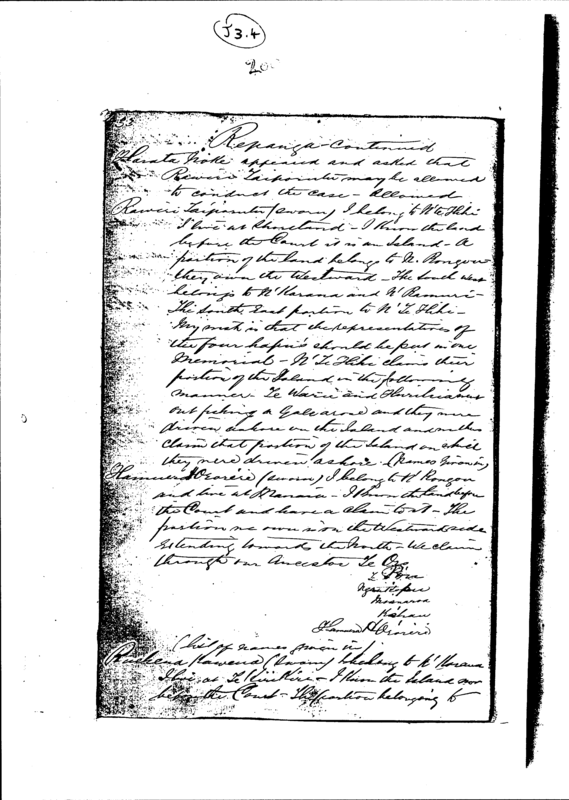 J3.4
200
Repanga - Continued
Harata Noke appeared and asked that
Raweiri Taiporutu may be allowed
to conduct the case - Allowed
Raweiri Taiporutu (sworn) I belong to N' Te Hihi
I live at - I know the land
before the Court it is an Island - A
portion of the land belongs to N. Rongou
they own the Westward - The South West
belongs to N' Karana and N' Ramuri -
The South East portion to N' Te Hihi -
My wish is that the representatives of
the four hapus should be put in one
Memorial - N' Te Hihi claims their
portion of the Island in the following
manner Te Warii and were
out fishing a Gale arose and they were
driven ashore on the Island and
claim that portion of the Island on which
they were driven ashore (Names given in)
Hamuera (sworn) I belong to N' Rongou
and live at Manaia - I know the land before
the Court and have a claim to it - The
portion we own is on the Westward side
extending towards the North - We claim
through our Ancestor Te

Hamuera
(list of names given in)
(sworn) I belong to N' Karana
I live at Te Kirikiri - I know the Island now
before the Court - The portion belonging to